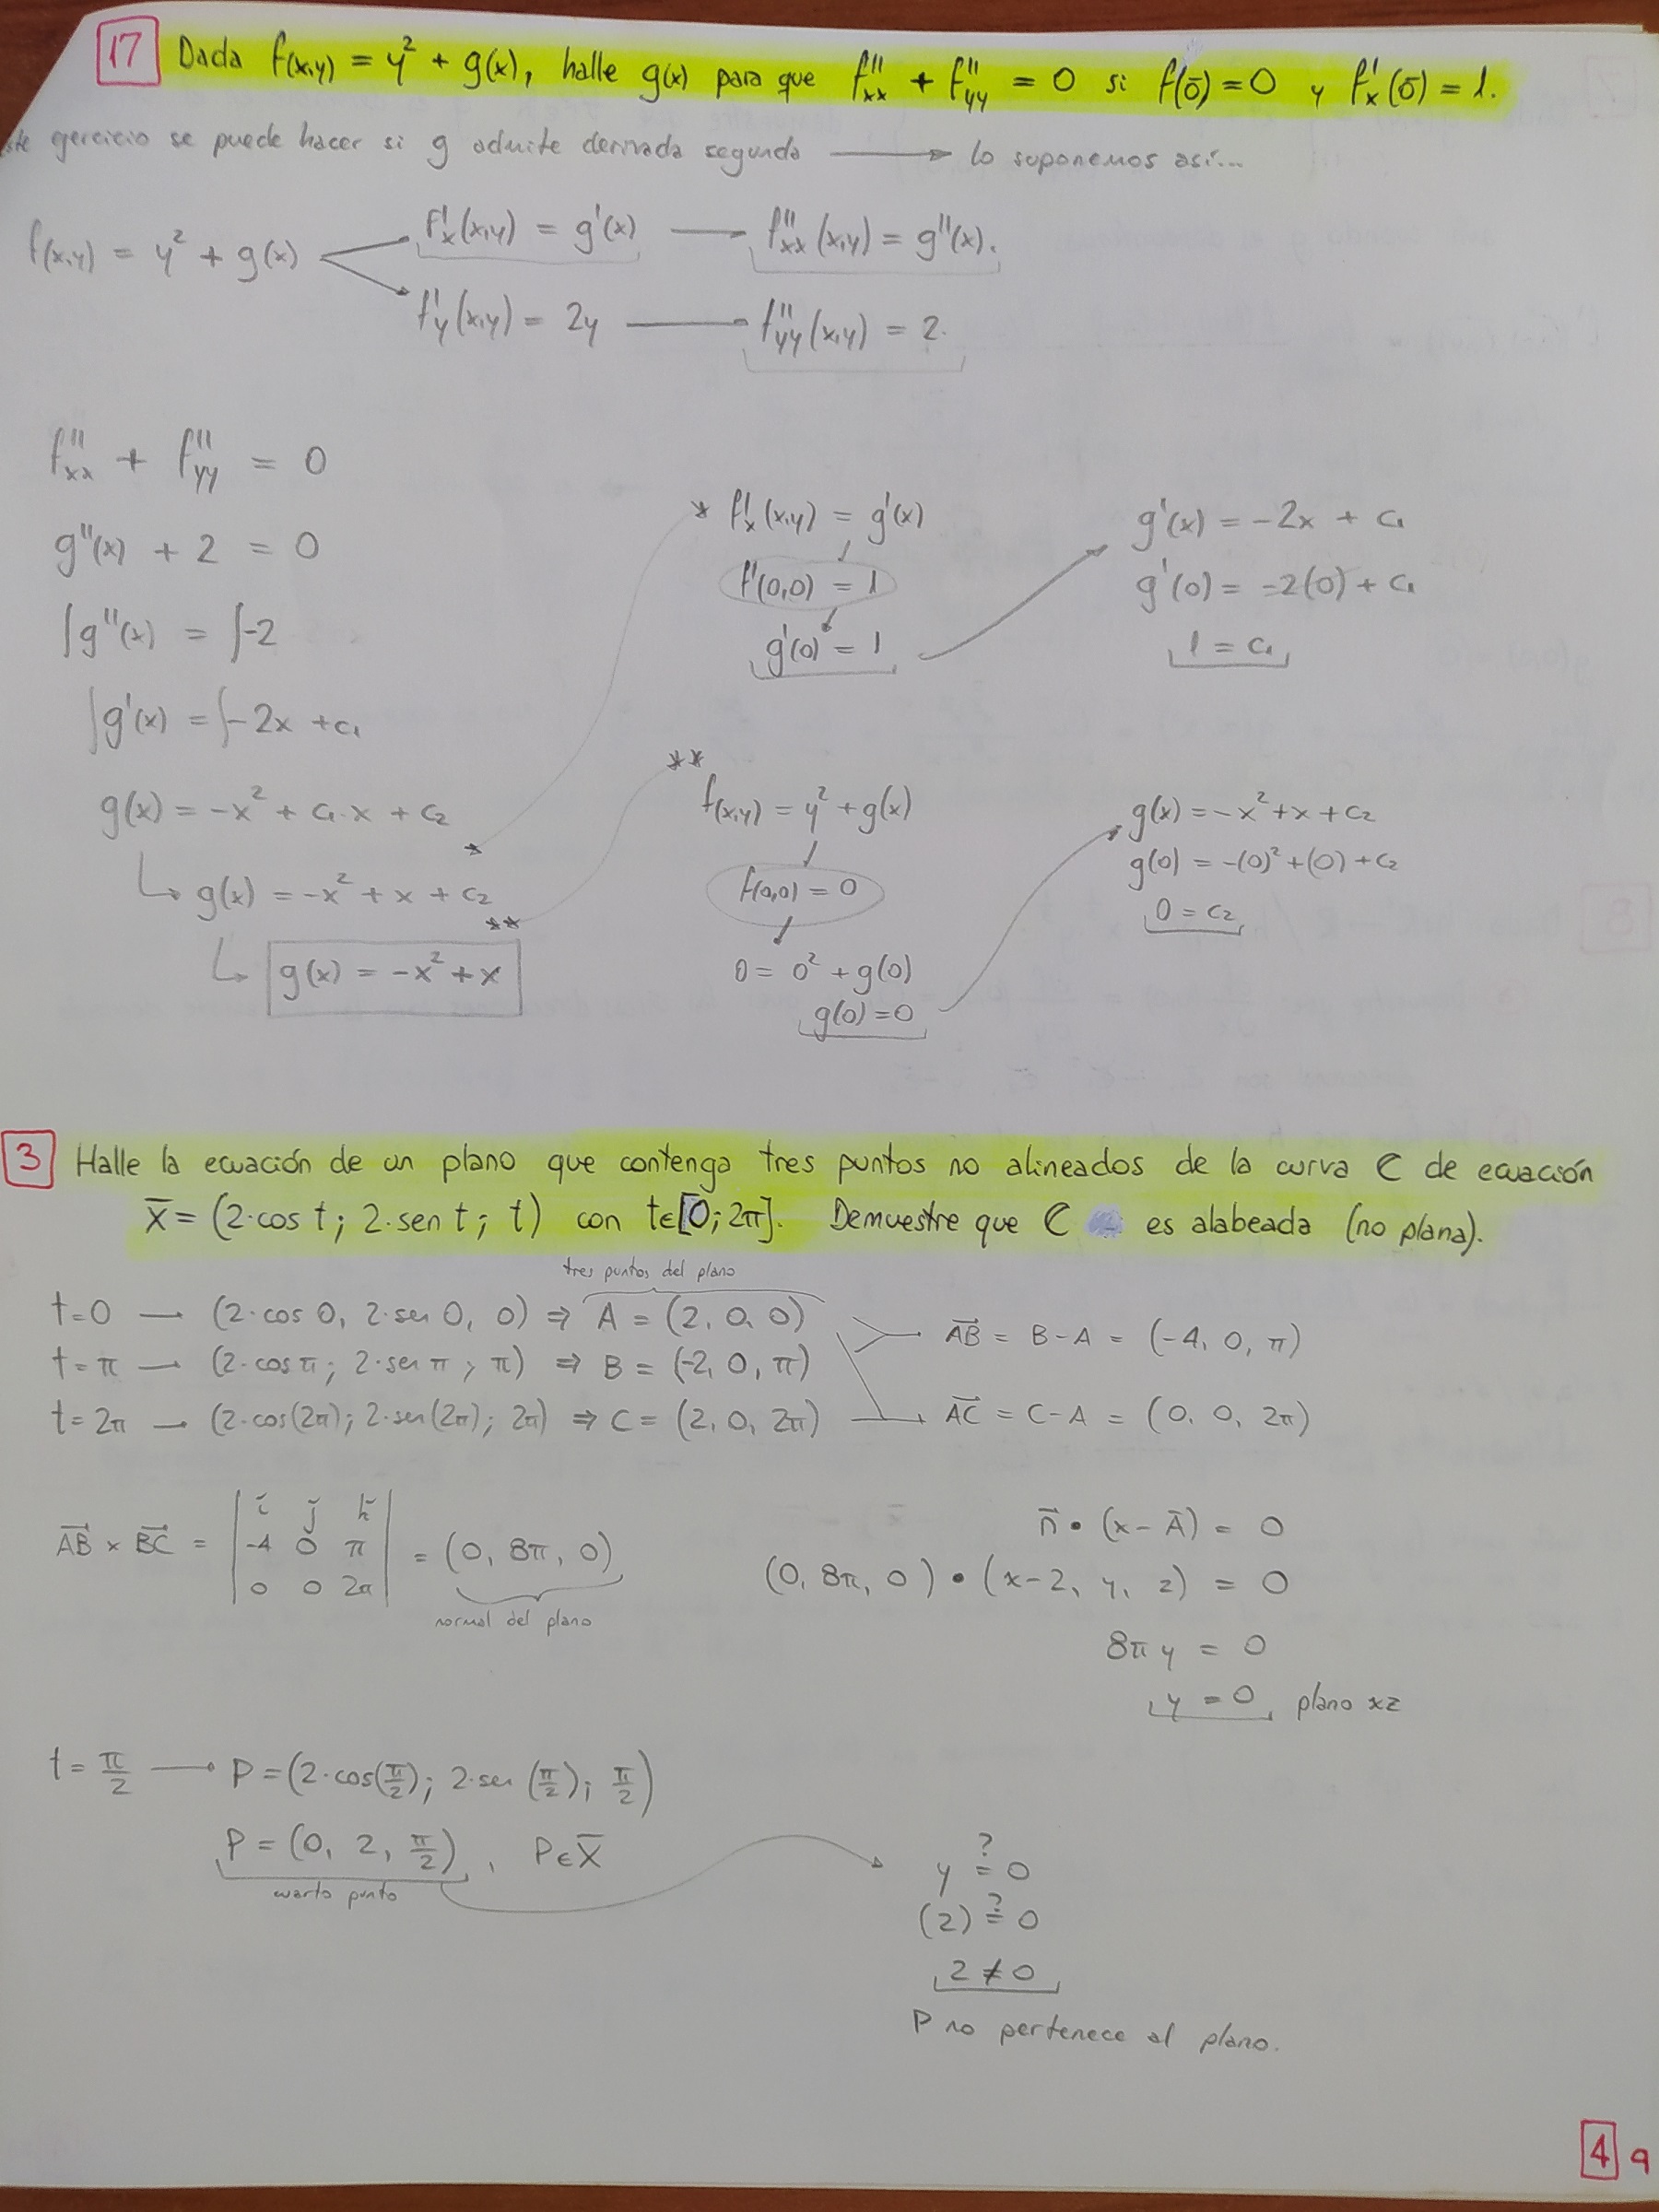 17 Dada f(x,y) = y² + g(x), halle g(x) para que f''xx + f''yy = 0 si f(ō) = 0 y f'x(ō) = 1.
ejercicio se puede hacer si g admite derivada segunda → lo suponemos así...
f(x,y) = y² + g(x)
f'x(x,y) = g'(x) — f''xx(x,y) = g''(x).
f'y(x,y) = 2y — f''yy(x,y) = 2.
f''xx + f''yy = 0
g''(x) + 2 = 0
∫g''(x) = ∫-2
∫g'(x) = ∫-2x + c₁
g(x) = -x² + c₁·x + c₂
*
g(x) = -x² + x + c₂
**
g(x) = -x² + x
* f'x(x,y) = g'(x)
f'(0,0) = 1
g'(0) = 1
g'(x) = -2x + c₁
g'(0) = -2(0) + c₁
1 = c₁
**
f(x,y) = y² + g(x)
f(0,0) = 0
0 = 0² + g(0)
g(0) = 0
g(x) = -x² + x + c₂
g(0) = -(0)² + (0) + c₂
0 = c₂
3 Halle la ecuación de un plano que contenga tres puntos no alineados de la curva C de ecuación
x̄ = (2·cos t; 2·sen t; t) con t∈[0; 2π]. Demuestre que C es alabeada (no plana).
tres puntos del plano
t=0 — (2·cos 0, 2·sen 0, 0) ⇒ A = (2, 0, 0)
t=π — (2·cos π; 2·sen π, π) ⇒ B = (-2, 0, π)
t=2π — (2·cos(2π); 2·sen(2π); 2π) ⇒ C = (2, 0, 2π)
AB = B - A = (-4, 0, π)
AC = C - A = (0, 0, 2π)
AB × BC = | i j k |
| -4 0 π | = (0, 8π, 0)
| 0 0 2π |
normal del plano
n • (x - A) = 0
(0, 8π, 0) • (x-2, y, z) = 0
8π y = 0
y = 0, plano xz
t = π/2 → P = (2·cos(π/2); 2·sen(π/2); π/2)
P = (0, 2, π/2), P∈X̄
cuarto punto
y ≟ 0
(2) ≟ 0
2 ≠ 0
P no pertenece al plano.
4 9